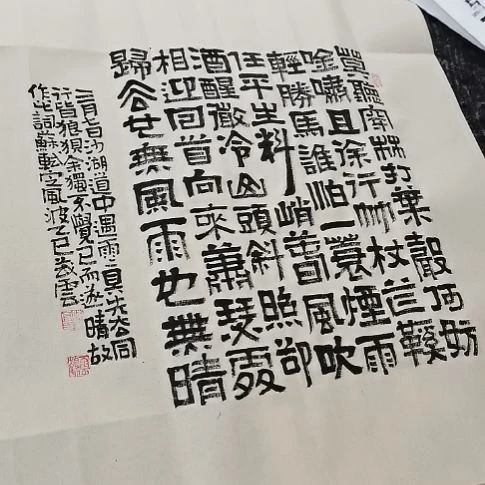 莫聽穿林打葉聲何妨
唫嘯且徐行竹杖芒鞵
輕勝馬誰怕一蓑煙雨
任平生料峭春風吹
酒醒微冷山頭斜照卻
相迎回首向來蕭瑟處
歸去也無風雨也無晴
三月七日沙湖道中遇雨々具先去同
行皆狼狽余獨不覺已而遂晴故
作此詞蘇軾定風波乙巳歲雲